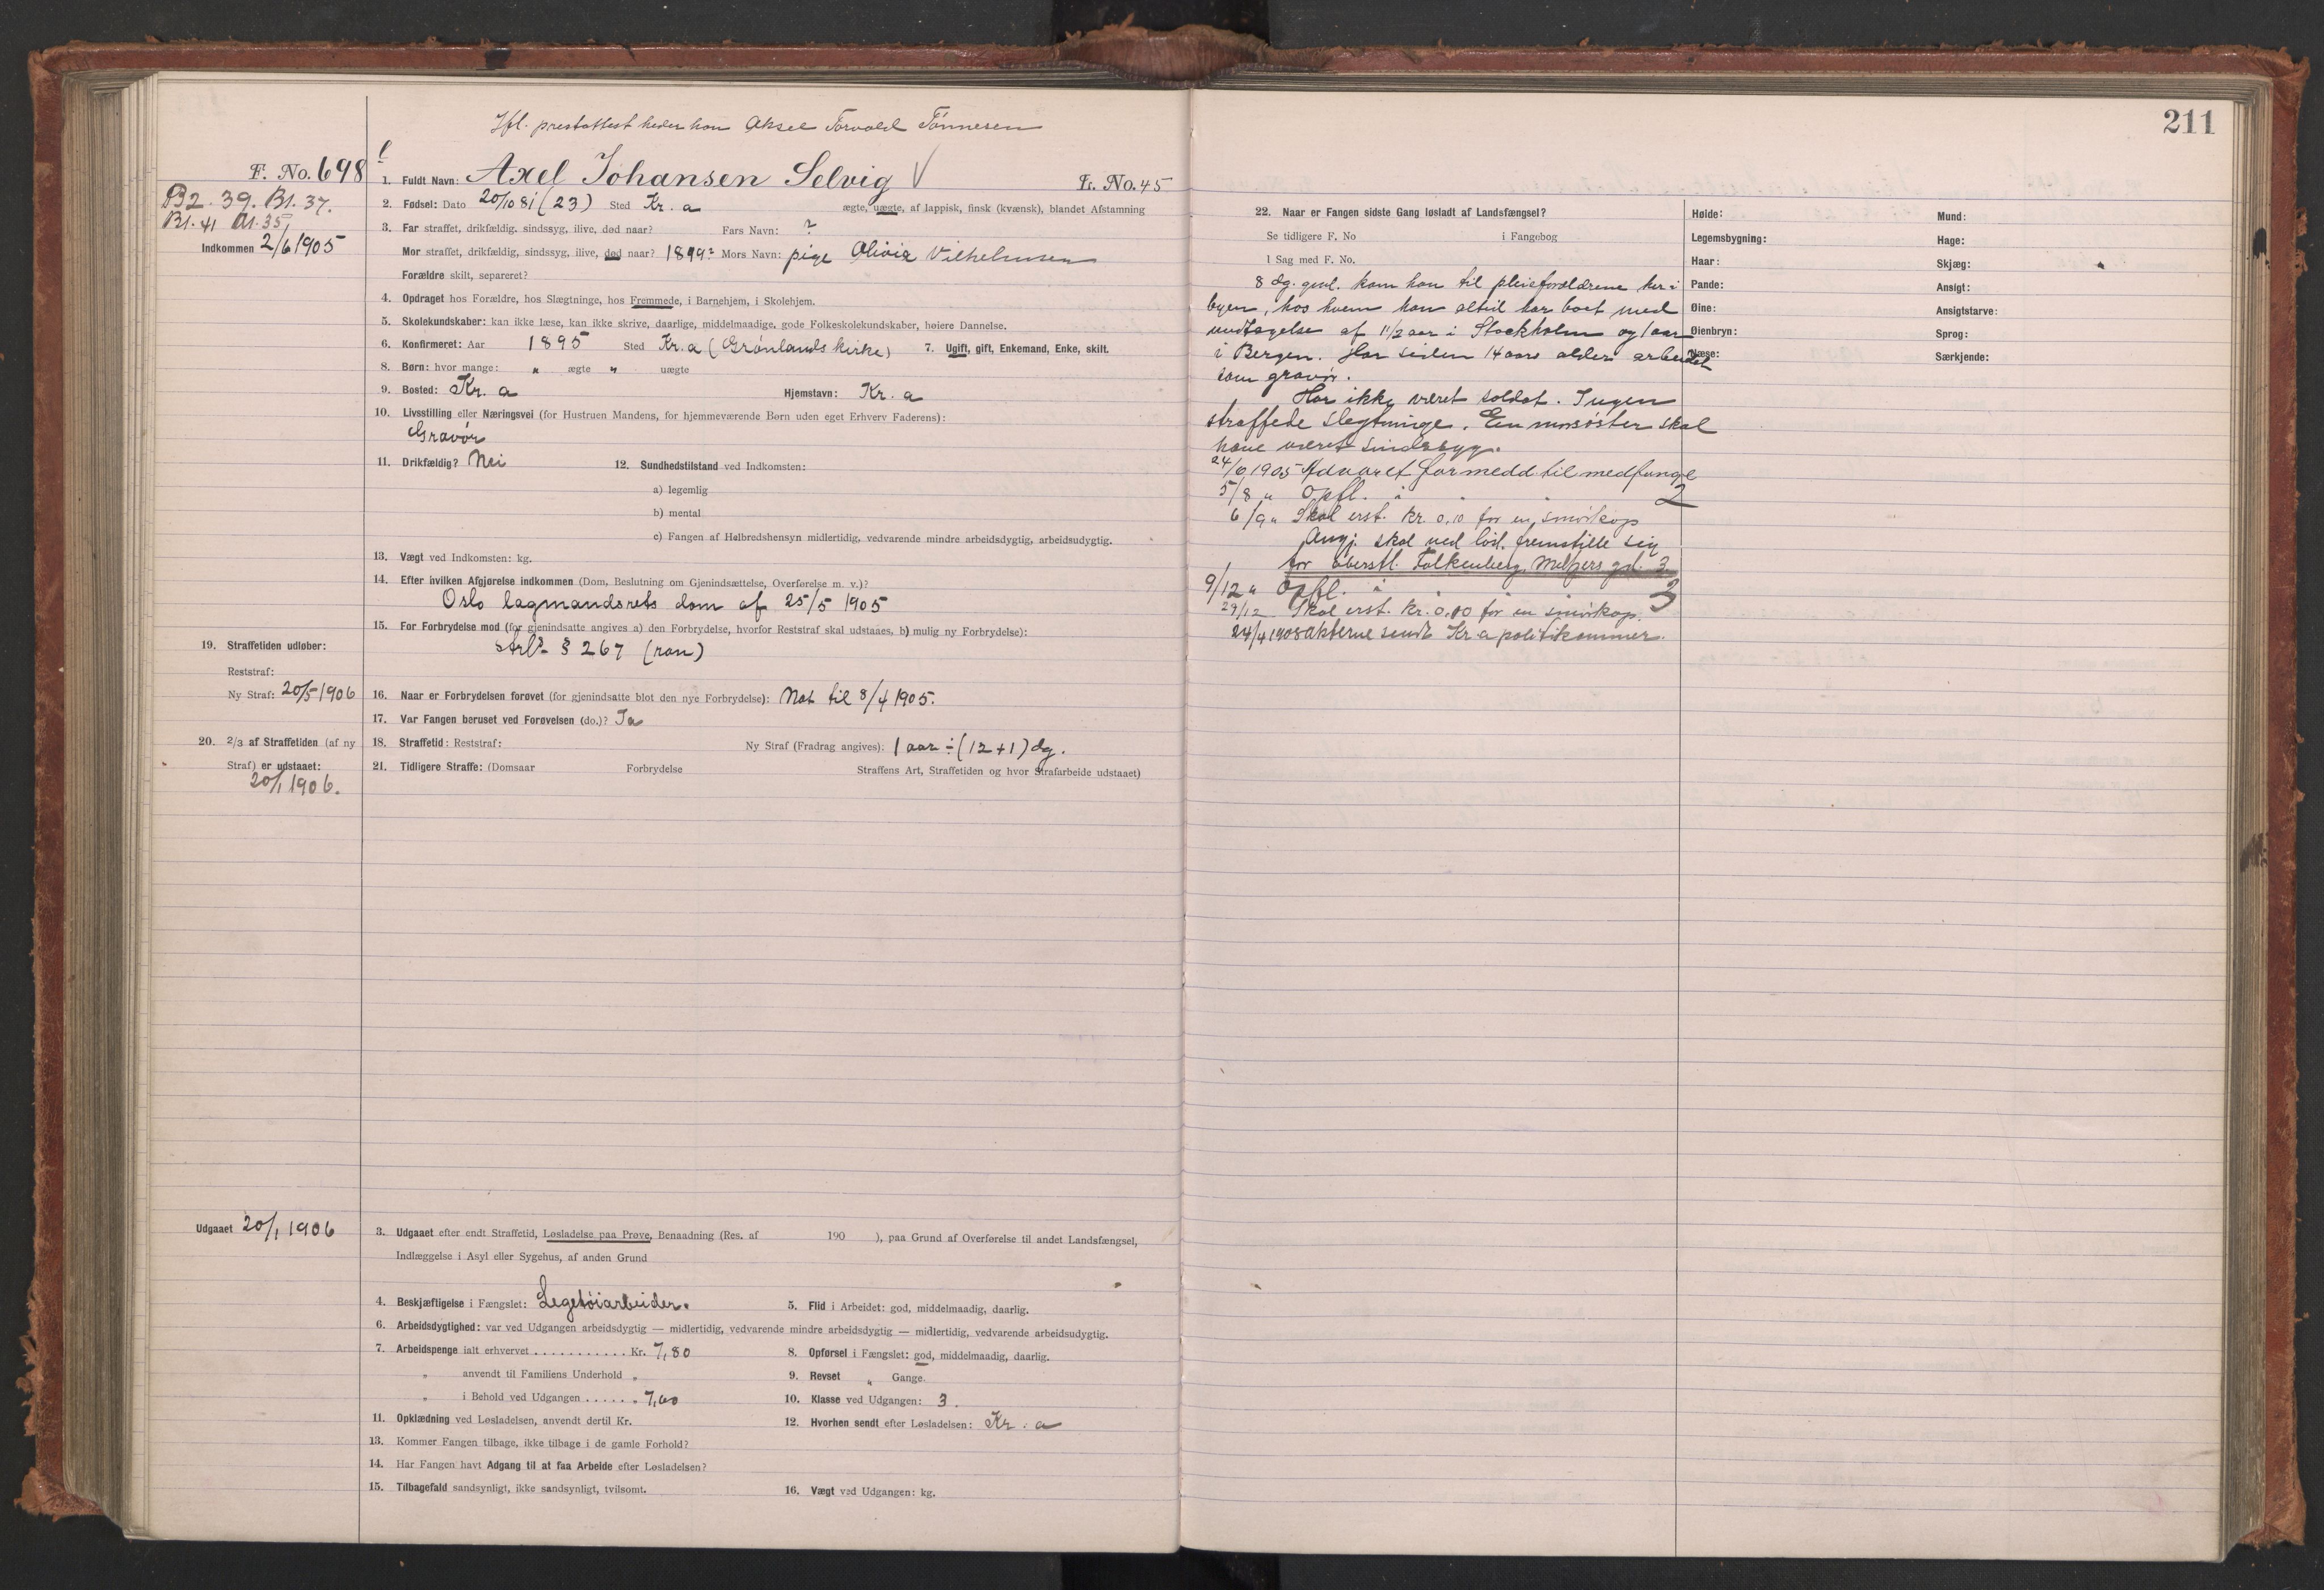 211
Ifl. prestattest heder han Aksel Torvald Tønnesen
F. No. 698
1. Fuldt Navn: Axel Johansen Selvig V Fr. No. 45
B2. 39. B1. 37.
B1. 41 A1. 35,
Indkommen 2/6 1905
2. Fødsel: Dato 20/10 81 (23) Sted Kr. a ægte, uægte, af lappisk, finsk (kvænsk), blandet Afstamning
3. Far straffet, drikfældig, sindssyg, ilive, død naar? Fars Navn: ?
Mor straffet, drikfældig, sindssyg, ilive, død naar? 1899? Mors Navn: pige Olivia Vilhelmsen
Forældre skilt, separeret?
4. Opdraget hos Forældre, hos Slægtninge, hos Fremmede, i Barnehjem, i Skolehjem.
5. Skolekundskaber: kan ikke læse, kan ikke skrive, daarlige, middelmaadige, gode Folkeskolekundskaber, høiere Dannelse.
6. Konfirmeret: Aar 1895 Sted Kr. a (Grønlands kirke) 7. Ugift, gift, Enkemand, Enke, skilt.
8. Børn: hvor mange: " ægte " uægte
9. Bosted: Kr. a Hjemstavn: Kr. a
10. Livsstilling eller Næringsvei (for Hustruen Mandens, for hjemmeværende Børn uden eget Erhverv Faderens):
Gravør
11. Drikfældig? Nei 12. Sundhedstilstand ved Indkomsten:
a) legemlig
b) mental
c) Fangen af Helbredshensyn midlertidig, vedvarende mindre arbeidsdygtig, arbeidsudygtig.
13. Vægt ved Indkomsten: kg.
14. Efter hvilken Afgjørelse indkommen (Dom, Beslutning om Gjenindsættelse, Overførelse m. v.)?
Oslo lagmandsrets dom af 25/5 1905
15. For Forbrydelse mod (for gjenindsatte angives a) den Forbrydelse, hvorfor Reststraf skal udstaaes, b) mulig ny Forbrydelse):
Strl. § 267 (ran)
19. Straffetiden udløber:
Reststraf:
Ny Straf: 20/5 1906
16. Naar er Forbrydelsen forøvet (for gjenindsatte blot den nye Forbrydelse): Nat til 8/4 1905.
17. Var Fangen beruset ved Forøvelsen (do.)? Ja
20. 2/3 af Straffetiden (af ny
Straf) er udstaaet:
20/1 1906.
18. Straffetid: Reststraf: Ny Straf (Fradrag angives): 1 aar ÷ (12+1) dg.
21. Tidligere Straffe: (Domsaar Forbrydelse Straffens Art, Straffetiden og hvor Strafarbeide udstaaet)
Udgaaet 20/1 1906
3. Udgaaet efter endt Straffetid, Løsladelse paa Prøve, Benaadning (Res. af 190 ), paa Grund af Overførelse til andet Landsfængsel,
Indlæggelse i Asyl eller Sygehus, af anden Grund
4. Beskjæftigelse i Fængslet: Legetøiarbeider. 5. Flid i Arbeidet: god, middelmaadig, daarlig.
6. Arbeidsdygtighed: var ved Udgangen arbeidsdygtig — midlertidig, vedvarende mindre arbeidsdygtig — midlertidig, vedvarende arbeidsudygtig.
7. Arbeidspenge ialt erhvervet . . . . . . . . . . . Kr. 7,80 8. Opførsel i Fængslet: god, middelmaadig, daarlig.
" anvendt til Familiens Underhold " 9. Revset " Gange.
" i Behold ved Udgangen . . . . . . " 7,60 10. Klasse ved Udgangen: 3.
11. Opklædning ved Løsladelsen, anvendt dertil Kr. 12. Hvorhen sendt efter Løsladelsen: Kr. a
13. Kommer Fangen tilbage, ikke tilbage i de gamle Forhold?
14. Har Fangen havt Adgang til at faa Arbeide efter Løsladelsen?
15. Tilbagefald sandsynligt, ikke sandsynligt, tvilsomt. 16. Vægt ved Udgangen: kg.
22. Naar er Fangen sidste Gang løsladt af Landsfængsel?
Se tidligere F. No i Fangebog
I Sag med F. No.
8 dg. gml. kom han til pleieforældrene her i
byen, hos hvem han altid har boet med
undtagelse af 1 1/2 aar i Stockholm og 1 aar
i Bergen. Har siden 14 aars alder arbeidet
som gravør.
Har ikke været soldat. Ingen
straffede slegtninge. En morsøster skal
have været sindssyg.
24/6 1905 Advaret for medd. til medfange
5/8 " Opfl. i " " 2
6/9 " Skal erst. kr. 0,10 for en smørkop
Angj. skal ved løsl. fremstille sig
for oberstl. Falkenberg, 3
9/12 " Opfl. i " 3
29/12 Skal erst. kr. 0,10 for en smørkop.
24/4 1908 akterne sendt Kr. a politikammer.
Høide:
Legemsbygning:
Haar:
Pande:
Øine:
Øienbryn:
Næse:
Mund:
Hage:
Skjæg:
Ansigt:
Ansigtstarve:
Sprog:
Særkjende: